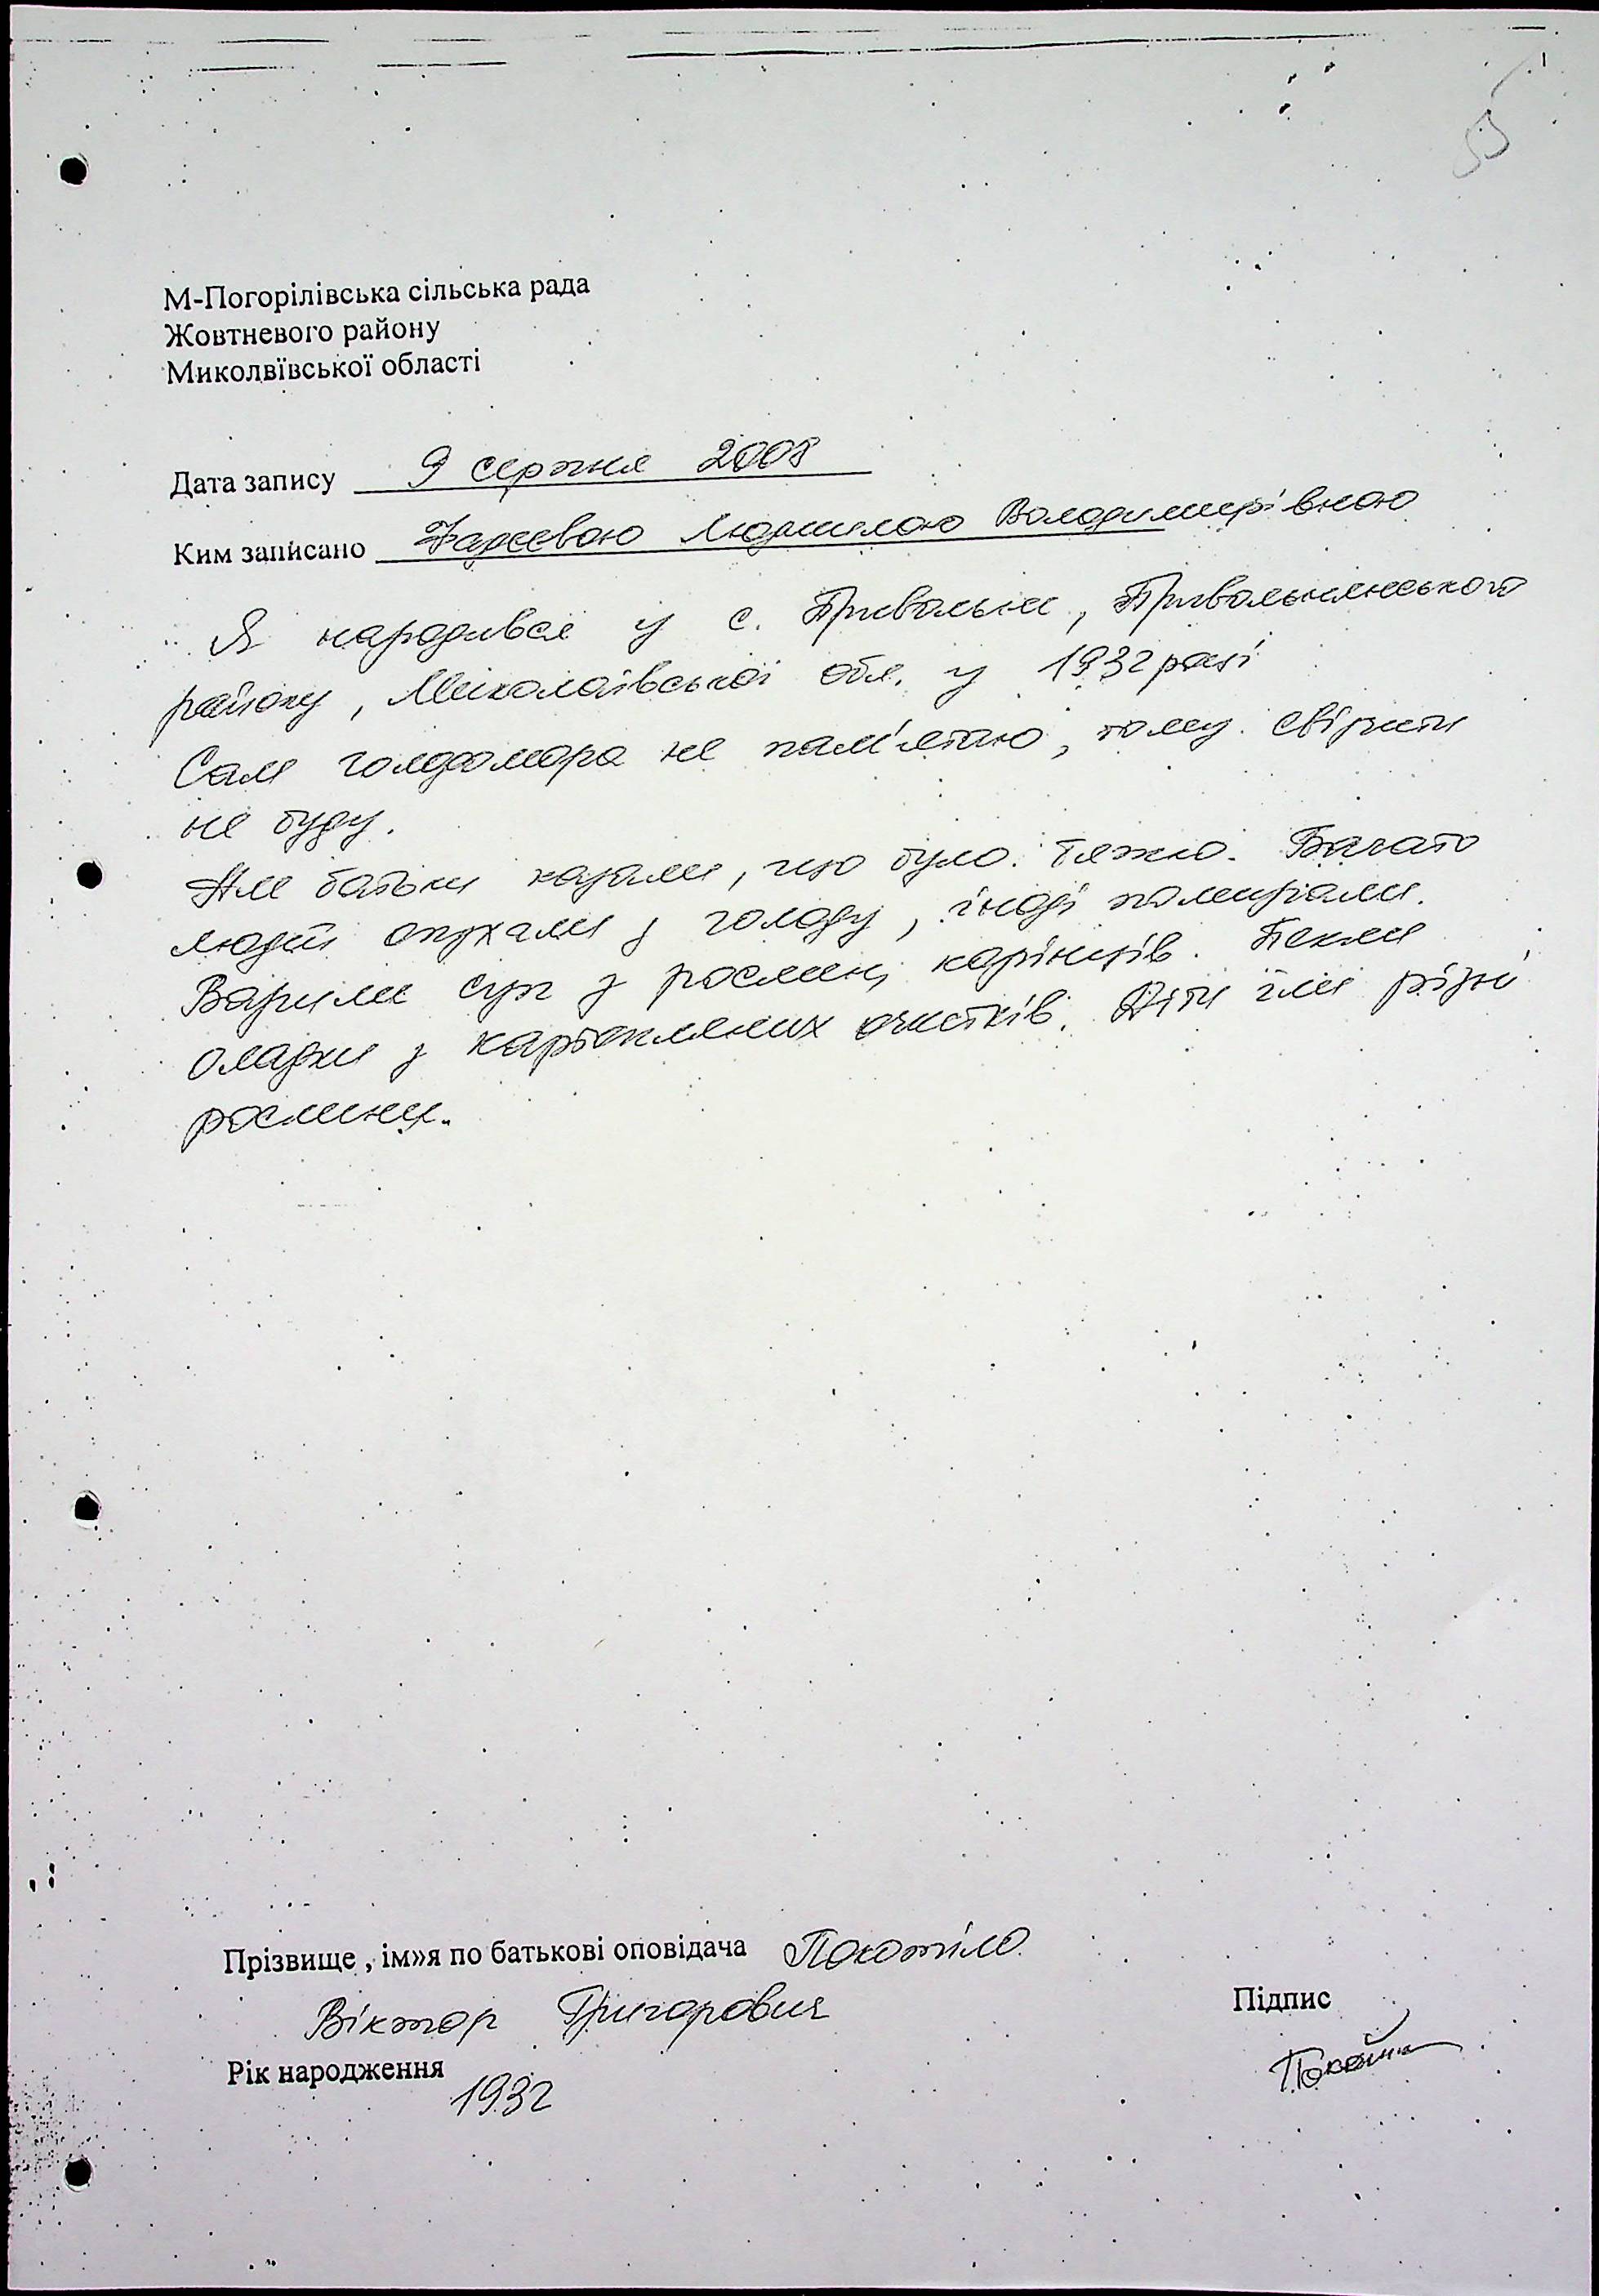 М-Погорілівська сільська рада
Жовтневого району
Миколвївської області
Дата запису 9 серпня 2008
Ким записано Людмилою Володимирівною
Я народився у с. Привольне, Привольнянського
району, Миколаївської обл. у 1932 році
Сам голодомора не пам'ятаю, тому свідчити
не буду.
Але батьки казали, що було тяжко. Багато
людей опухали з голоду, іноді помирали.
Варили суп з рослин, корінців. Пекли
оладки з картопляних очистків. Діти їли різні
рослини.
Прізвище , ім»я по батькові оповідача Покотіло
Віктор Григорович
Підпис
Рік народження 1932